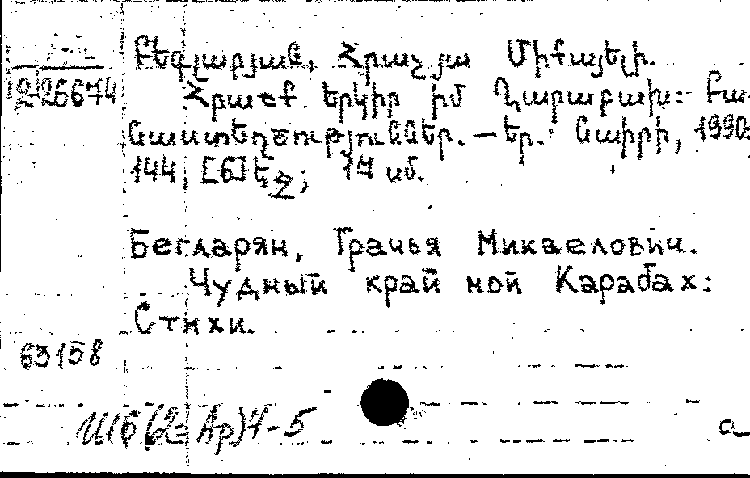 Բեգլարյան, Հրաչյա Միքայելի.
226674
Հրաշք երկիր իմ Ղարաբախ: Բա-
նաստեղծություններ. – Եր.: Նաիրի, 1990.
144, [6] էջ; 17 սմ.
Бегларян, Грачья Микаелович.
Чудный край мой Карабах:
Стихи.
63158
Ш6(2=Ар)4-5
а